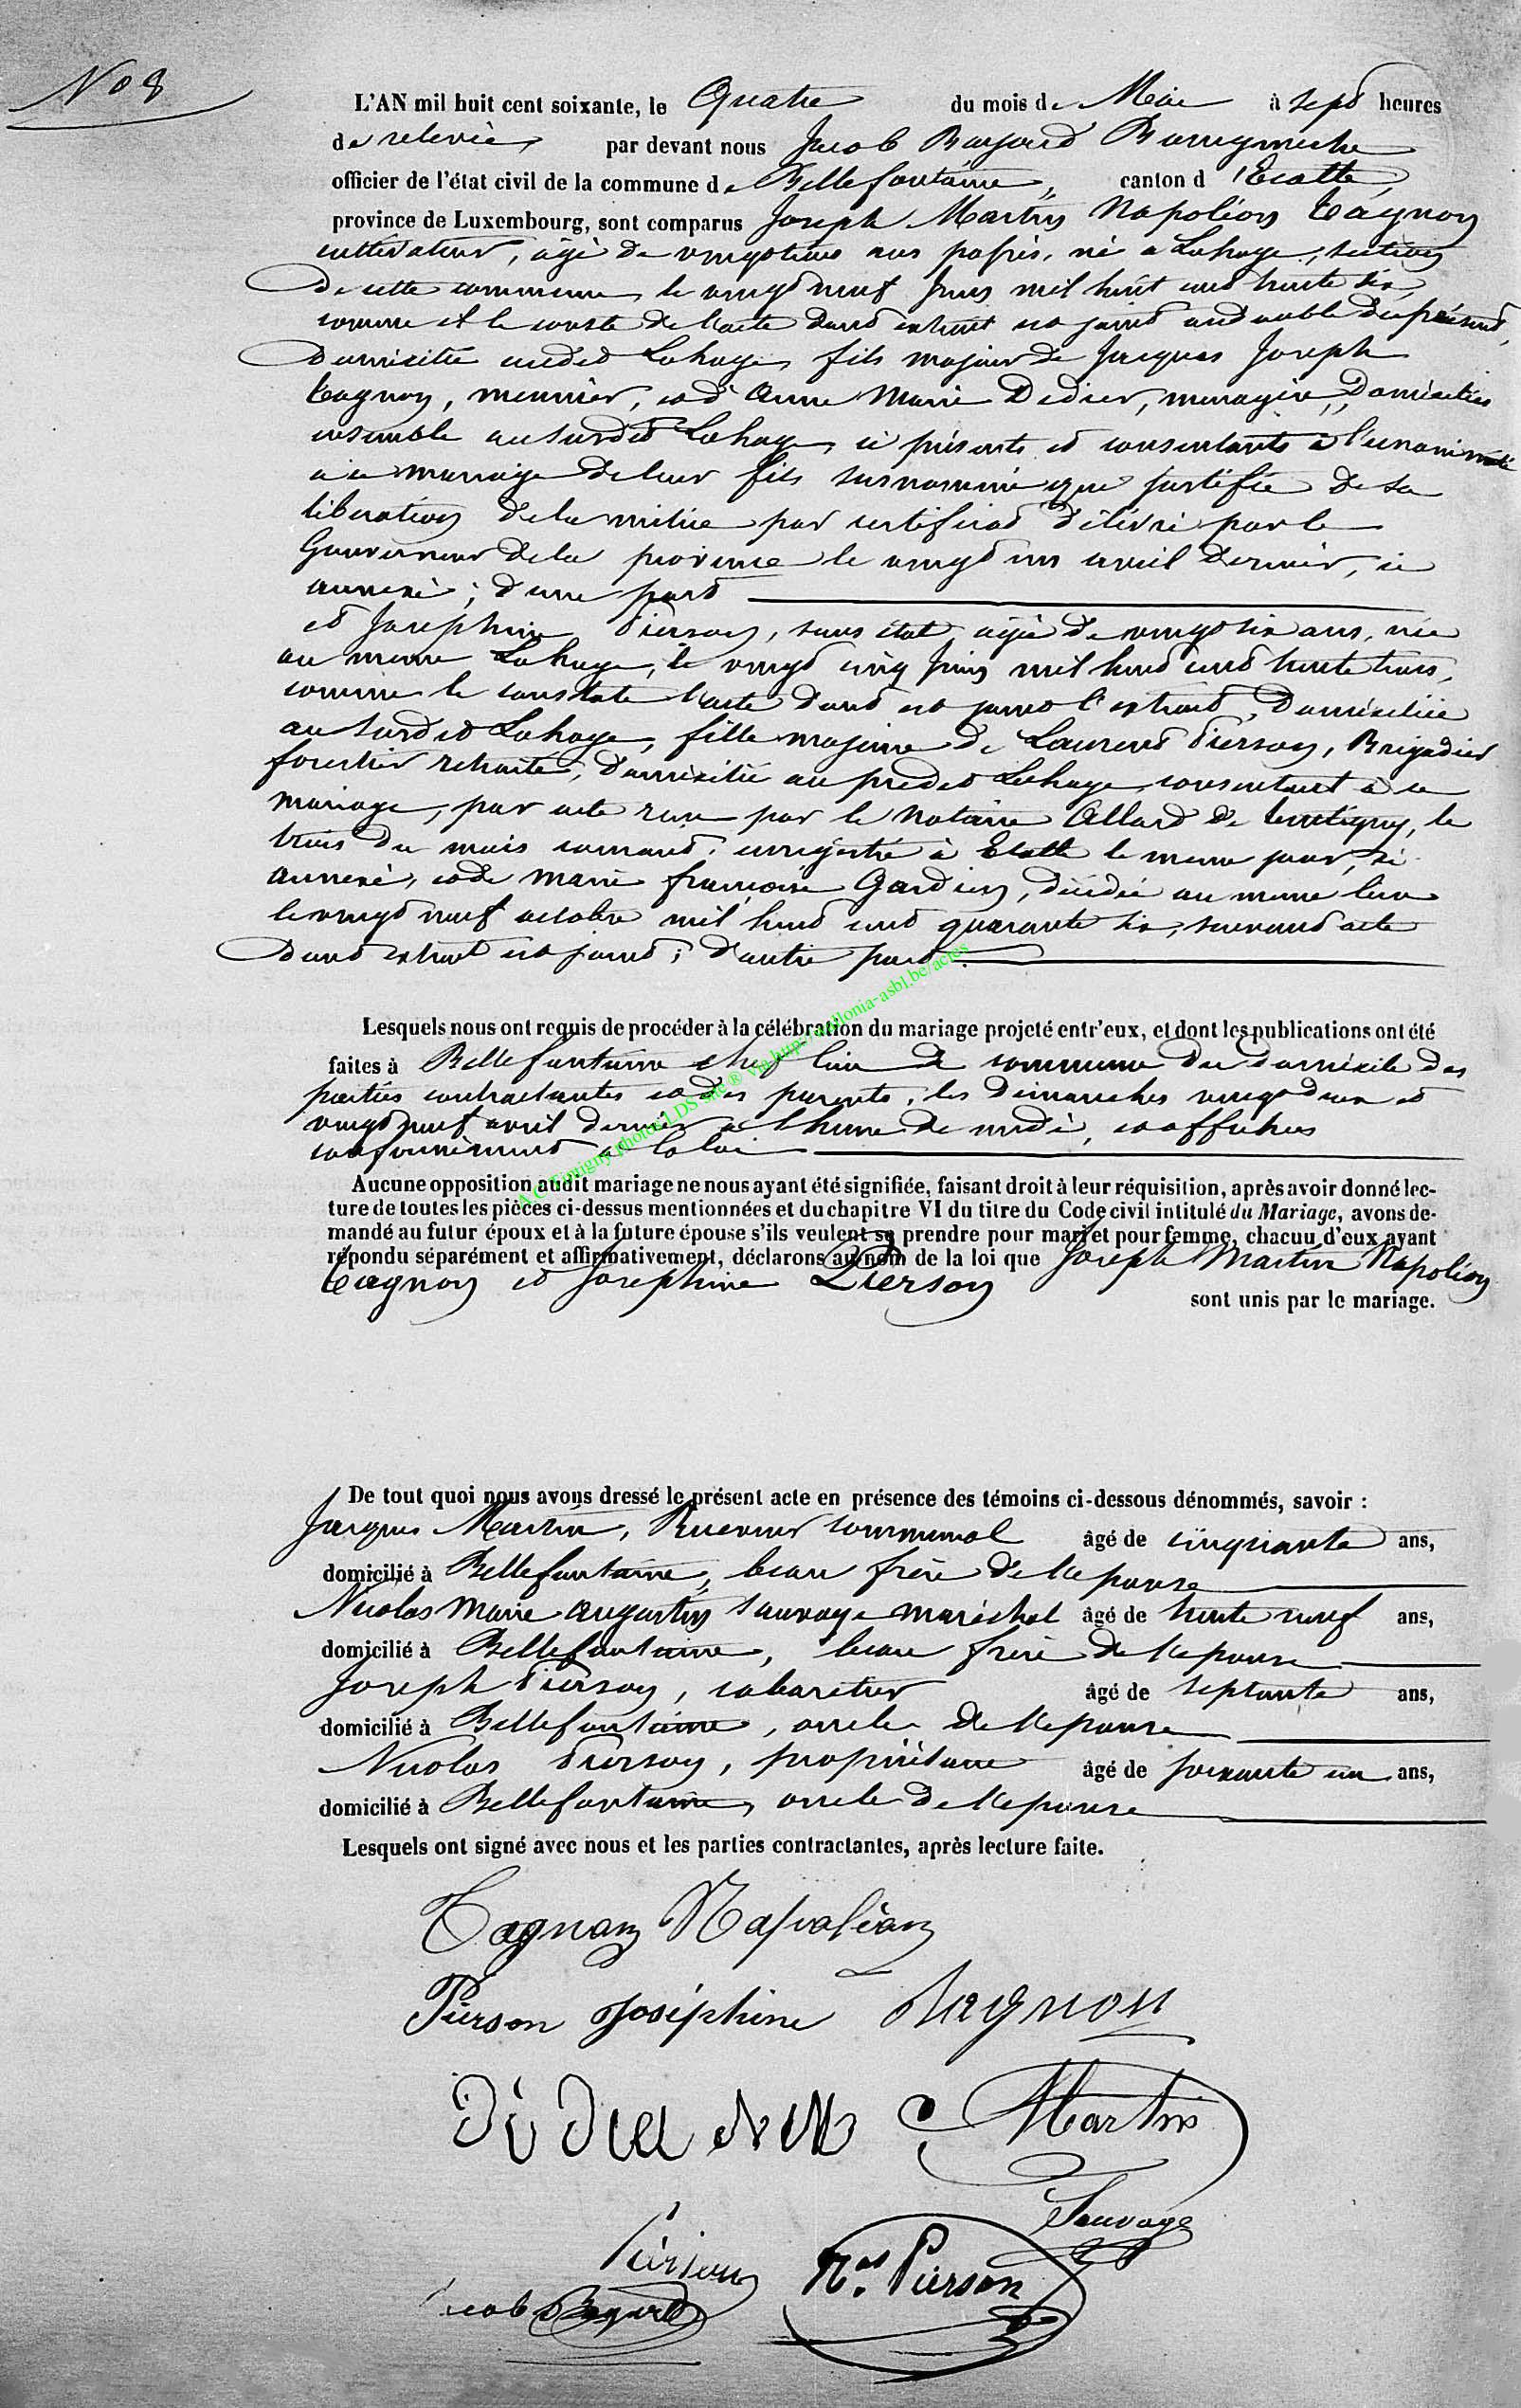 No 8
L'AN mil huit cent soixante, le Quatre du mois de Mai à sept heures
de relevée, par devant nous Jacob Bayard Bourgmestre
officier de l'état civil de la commune de Bellefontaine, canton d'Etalle,
province de Luxembourg, sont comparus Joseph Martin Napoléon Tagnon
cultivateur, âgé de vingt trois ans passés, né a Lahage, section
de cette commune le vingt neuf Juin mil huit cent trente six,
comme il le conste de l'acte dont extrait est joint au double du présent,
domicilié audit Lahage, fils majeur de Jacques Joseph
Tagnon, meunier, et d'Anne Marie Didier, menagère, domiciliés
ensemble au susdit Lahage, ici présents et consentants à l'unanimité
à ce mariage de leur fils susnommé que justifie de sa
libération de la milice par certificat délivré par le
Gouverneur de la province le vingt un avril dernier, ci
annexé; d'une part
et Josephine Pierson, sans état, agée de vingt six ans, née
au meme Lahage, le vingt cinq Juin mil huit cent trente trois,
comme le constate l'acte dont est joint l'extrait, domiciliée
au susdit Lahage, fille majeure de Laurent Pierson, Brigadier
forestier retraité, domicilié au predit Lahage, consentant à ce
mariage, par acte reçu par le Notaire Allard de Tintigny, le
trois du mois courant, enregistré à Etalle le meme jour, ci
annexé, et de Marie françoise Gardien, décédée au meme lieu
le vingt neuf octobre mil huit cent quarante six, suivant acte
dont extrait est joint; d'autre part.
Lesquels nous ont requis de procéder à la célébration du mariage projeté entr'eux, et dont les publications ont été
faites à Bellefontaine chef lieu de commune du domicile des
parties contractantes et des parents, les dimanches vingt deux et
vingt neuf avril dernier a l'heure de midi, et affichées
conformément a la loi
A.C. Tintigny photos LDS site ® via http://wallonia-asbl.be/actes
Aucune opposition audit mariage ne nous ayant été signifiée, faisant droit à leur réquisition, après avoir donné lec-
ture de toutes les pièces ci-dessus mentionnées et du chapitre VI du titre du Code civil intitulé du Mariage, avons de-
mandé au futur époux et à la future épouse s'ils veulent se prendre pour mari et pour femme, chacuu d'eux ayant
répondu séparément et affirmativement, déclarons au nom de la loi que Joseph Martin Napoléon
Tagnon et Josephine Pierson
sont unis par le mariage.
De tout quoi nous avons dressé le présent acte en présence des témoins ci-dessous dénommés, savoir :
Jacques Martin, Receveur communal âgé de cinquante ans,
domicilié à Bellefontaine, beau frère de l'epouse
Nicolas Marie Augustin Sauvage maréchal âgé de trente neuf ans,
domicilié à Bellefontaine, beau frère de l'epouse
Joseph Pierson, cabaretier âgé de septante ans,
domicilié à Bellefontaine, oncle de l'epouse
Nicolas Pierson, propriétaire âgé de soixante un ans,
domicilié à Bellefontaine, oncle de l'epouse
Lesquels ont signé avec nous et les parties contractantes, après lecture faite.
Tagnon Napoléon
Pierson Joséphine Tagnon
Martin
Sauvage
Pierson Nas. Pierson
Jacob Bayard